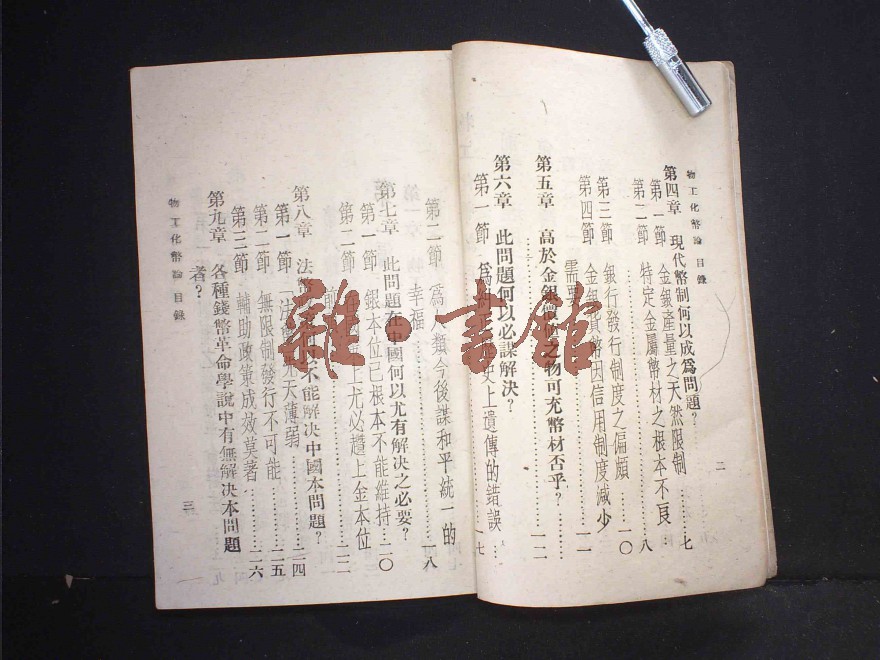 物工化幣論 目錄
二
第四章 現代幣制何以成爲問題?
第一節 金銀產量之天然限制……七
第二節 特定金屬幣材之根本不良…八
第三節 銀行發行制度之偏頗……一〇
第四節 金銀貨幣因信用制度減少
需要……一一
第五章 高於金銀價值之物可充幣材否乎?
……一二
第六章 此問題何以必謀解決?
第一節 爲糾 史上遺傳的錯誤…一七
第二節 爲人類今後謀和平統一的
幸福……一八
第七章 此問題在中國何以尤有解決之必要?
第一節 銀本位已根本不能維持…二〇
第二節 上尤必趲上金本位
前……二二
第八章 法幣 不能解決中國本問題?
第一節 「法 先天薄弱……二四
第二節 無限制發行不可能……二五
第三節 輔助政策成效莫著……二六
第九章 各種錢幣革命學說中有無解決本問題
者?
物工化幣論 目錄
三
雜·書館